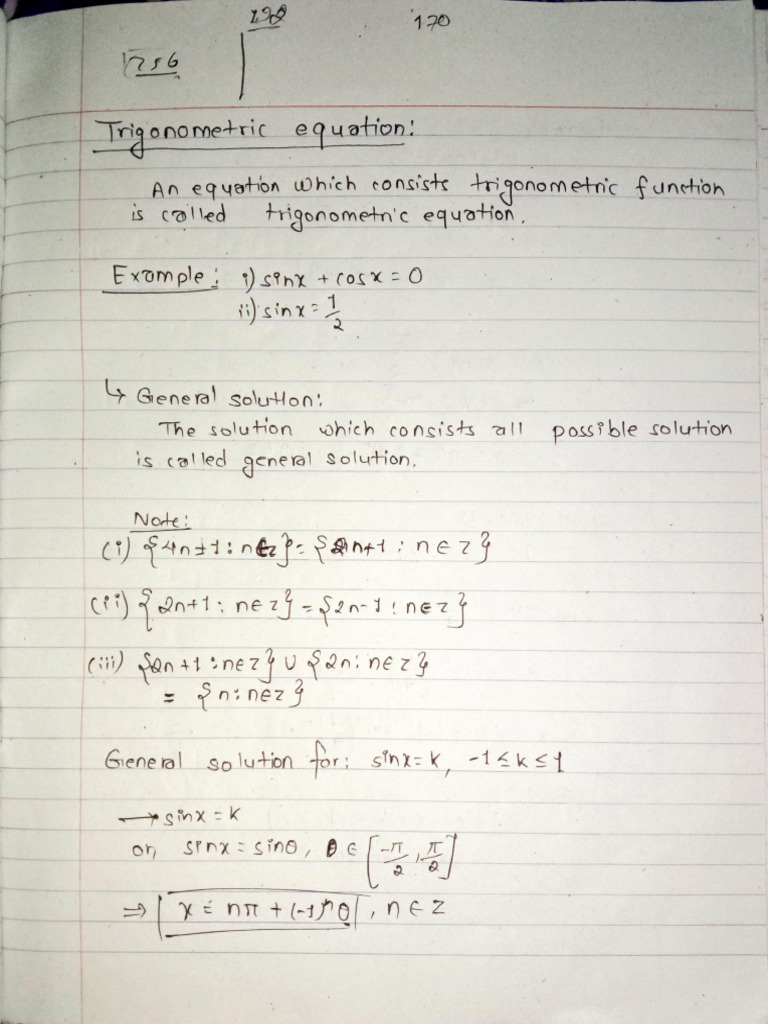 170
Trigonometric equation:
An equation which consists trigonometric function
is called trigonometric equation.
Example: i) sinx + cosx = 0
ii) sinx = 1/2
↳ General solution:
The solution which consists all possible solution
is called general solution.
Note:
(i) {4n±1 : n∈z} = {2n+1 : n∈z}
(ii) {2n+1 : n∈z} = {2n-1 : n∈z}
(iii) {2n+1 : n∈z} ∪ {2n : n∈z}
= {n : n∈z}
General solution for: sinx = k, -1≤k≤1
→ sinx = k
or, sinx = sinθ, θ ∈ [-π/2, π/2]
⇒ x = nπ + (-1)ⁿθ, n∈z